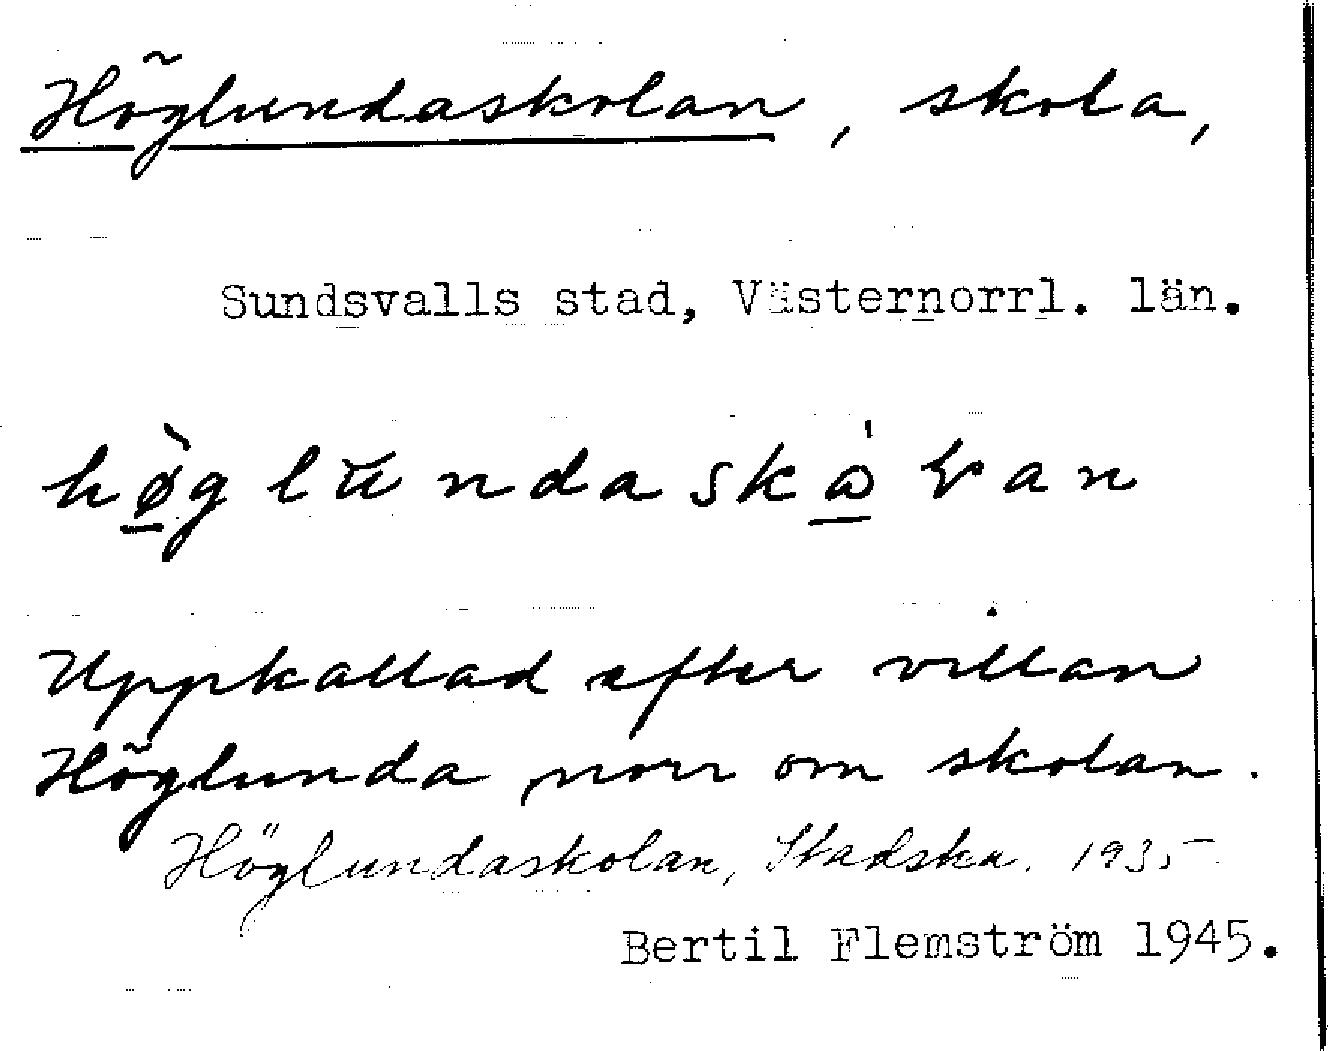 Höglundaskolan, skola,
Sundsvalls stad, Västernorrl. län.
hø̀glundaskὼɽan
Uppkallad efter villan
Höglunda norr om skolan.
Höglundaskolan, Stadska. 1935
Bertil Flemström 1945.